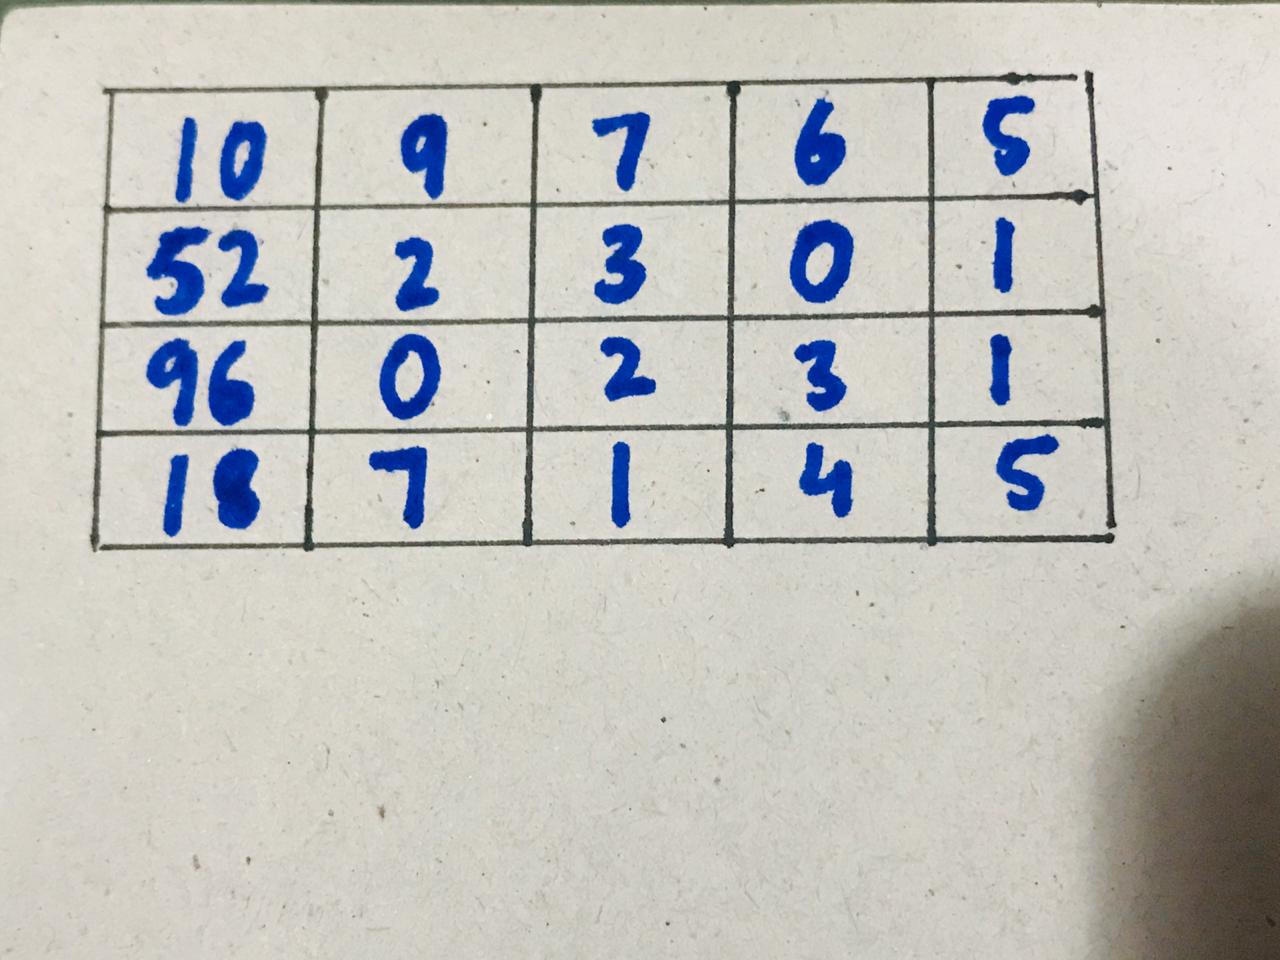 10 9 7 6 5
52 2 3 0 1
96 0 2 3 1
18 7 1 4 5